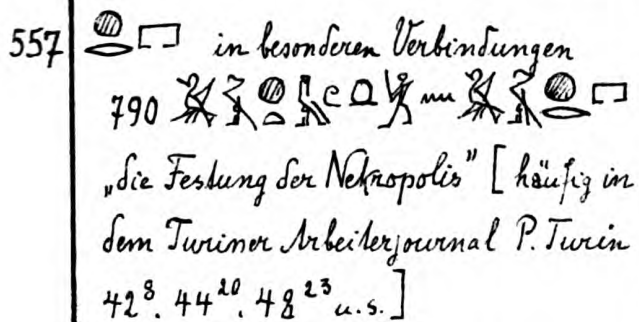 557 𓐍𓂋𓉐 in besonderen Verbindungen
790
„die Festung der Nekropolis" [häufig in
dem Turiner Arbeiterjournal P. Turin
42⁸. 44²⁰. 48²³ u.s.]